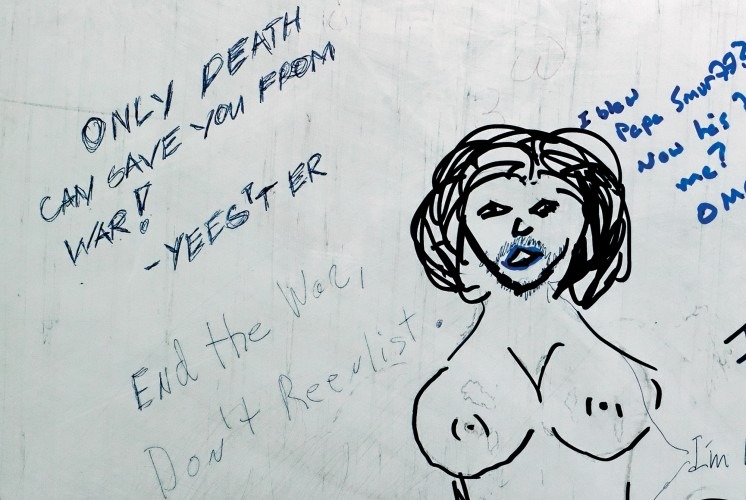 ONLY DEATH
CAN SAVE YOU FROM
WAR!
-YEES'T ER
End the War,
Don't Reenlist.
I blew
Papa Smurff?
Now he's
me?
OMG
I'm